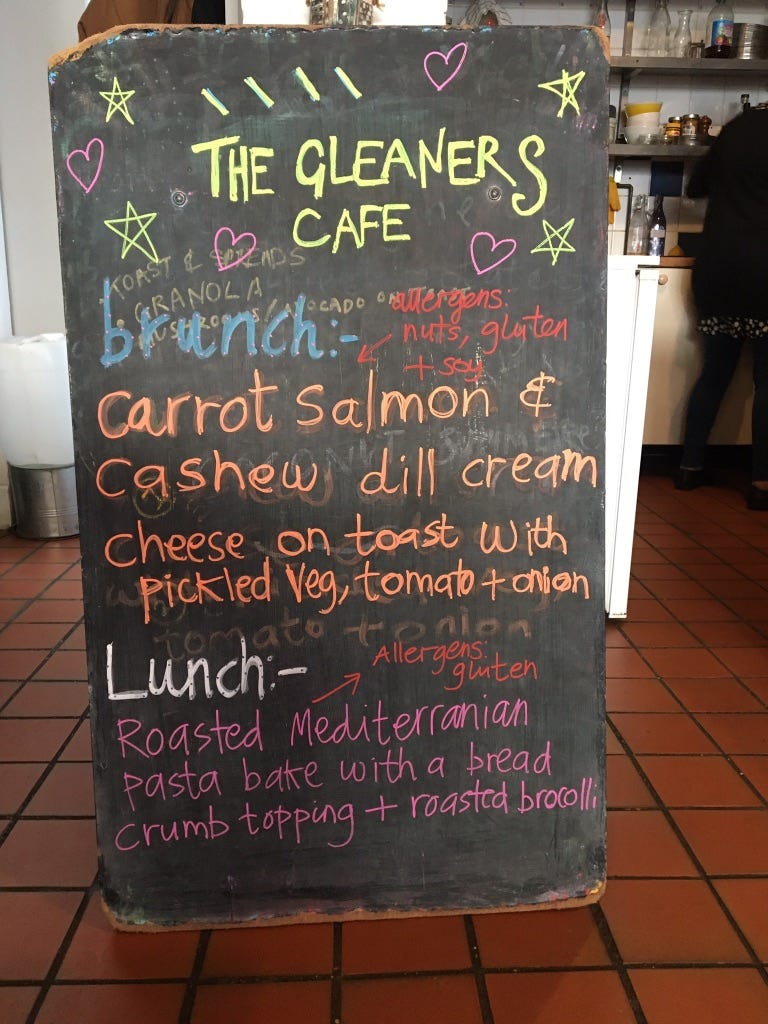 THE GLEANERS
CAFE
TOAST & SPREADS
GRANOLA
brunch:-
allergens:
nuts, gluten
+ soy
carrot salmon &
cashew dill cream
cheese on toast with
pickled veg, tomato + onion
tomato + onion
Lunch:-
Allergens:
gluten
Roasted Mediterranian
pasta bake with a bread
crumb topping + roasted brocolli